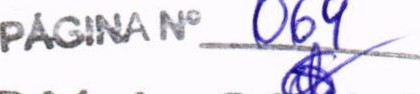 PÁGINA Nº 064